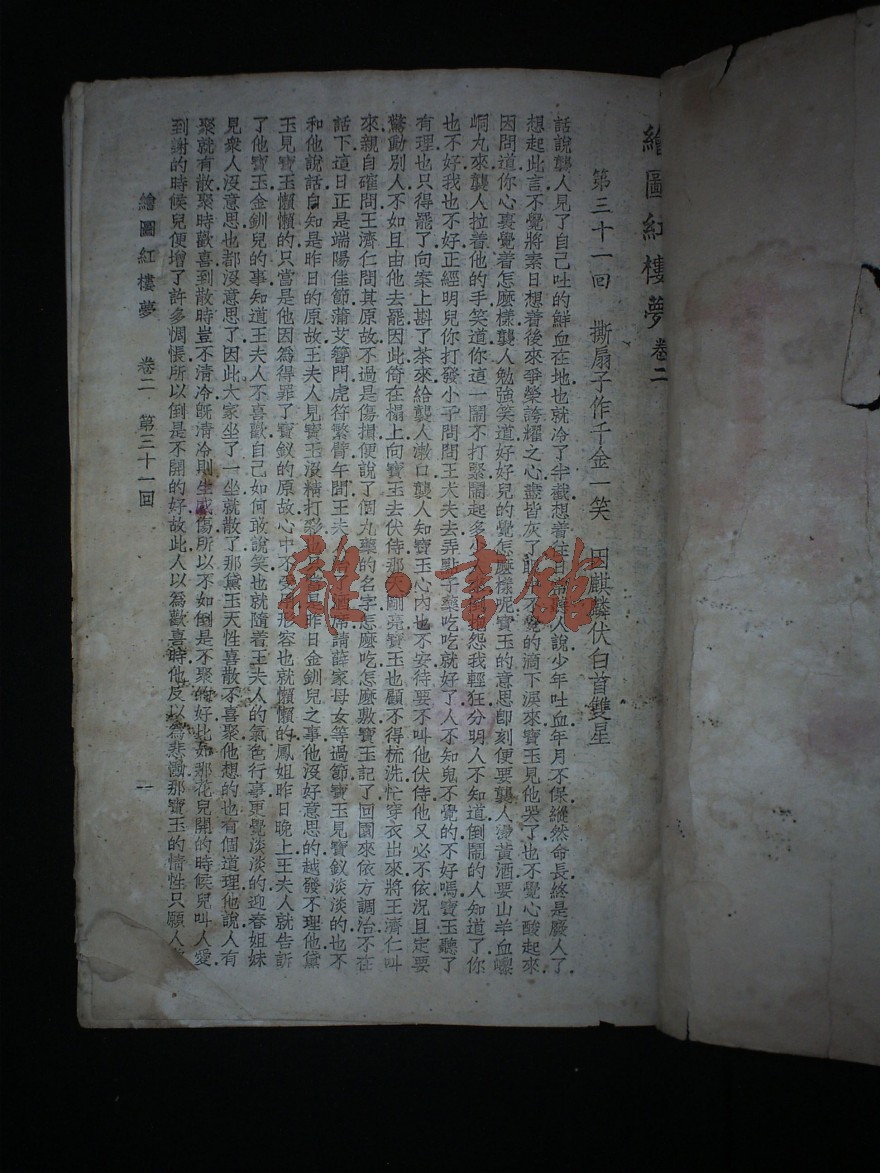 繪圖紅樓夢 卷二
第三十一回 撕扇子作千金一笑 因麒麟伏白首雙星
話說襲人見了自己吐的鮮血在地也就冷了半截想着往 人說少年吐血年月不保縱然命長終是廢人了
想起此言不覺將素日想着後來爭榮誇耀之心盡皆灰了 不覺的滴下淚來寶玉見他哭了也不覺心酸起來
因問道你心裏覺着怎麼樣襲人勉強笑道好好兒的覺怎麼樣呢寶玉的意思卽刻便要襲人燙黃酒要山羊血㠠
峒丸來襲人拉着他的手笑道你這一鬧不打緊鬧起多少 怨我輕狂分明人不知道倒鬧的人知道了你
也不好我也不好正經明兒你打發小子問問王大夫去弄點子藥吃吃就好了人不知鬼不覺的不好嗎寶玉聽了
有理也只得罷了向案上斟了茶來給襲人漱口襲人知寶玉心內也不安待要不叫他伏侍他又必不依況且定要
驚動別人不如且由他去罷因此倚在榻上向寶玉去伏侍那天剛亮寶玉也顧不得梳洗忙穿衣出來將王濟仁叫
來親自確問王濟仁問其原故不過是傷損便說了個丸藥的名字怎麼吃怎麼敷寶玉記了回園來依方調治不在
話下這日正是端陽佳節蒲艾簪門虎符繫臂午間王夫 請薛家母女等過節寶玉見寶釵淡淡的也不
和他說話自知是昨日的原故王夫人見寶玉沒精打彩也 昨日金釧兒之事他沒好意思的越發不理他黛
玉見寶玉懶懶的只當是他因爲得罪了寶釵的原故心中不 形容也就懶懶的鳳姐昨日晚上王夫人就告訴
了他寶玉金釧兒的事知道王夫人不喜歡自己如何敢說笑也就隨着王夫人的氣色行事更覺淡淡的迎春姐妹
見衆人沒意思也都沒意思了因此大家坐了一坐就散了那黛玉天性喜散不喜聚他想的也有個道理他說人有
聚就有散聚時歡喜到散時豈不淸冷旣淸冷則生感傷所以不如倒是不聚的好比如那花兒開的時候兒叫人愛
到謝的時候兒便增了許多惆悵所以倒是不開的好故此人以爲歡喜時他反以爲悲慟那寶玉的情性只願人
繪圖紅樓夢 卷二 第三十一回 一
雜·書館